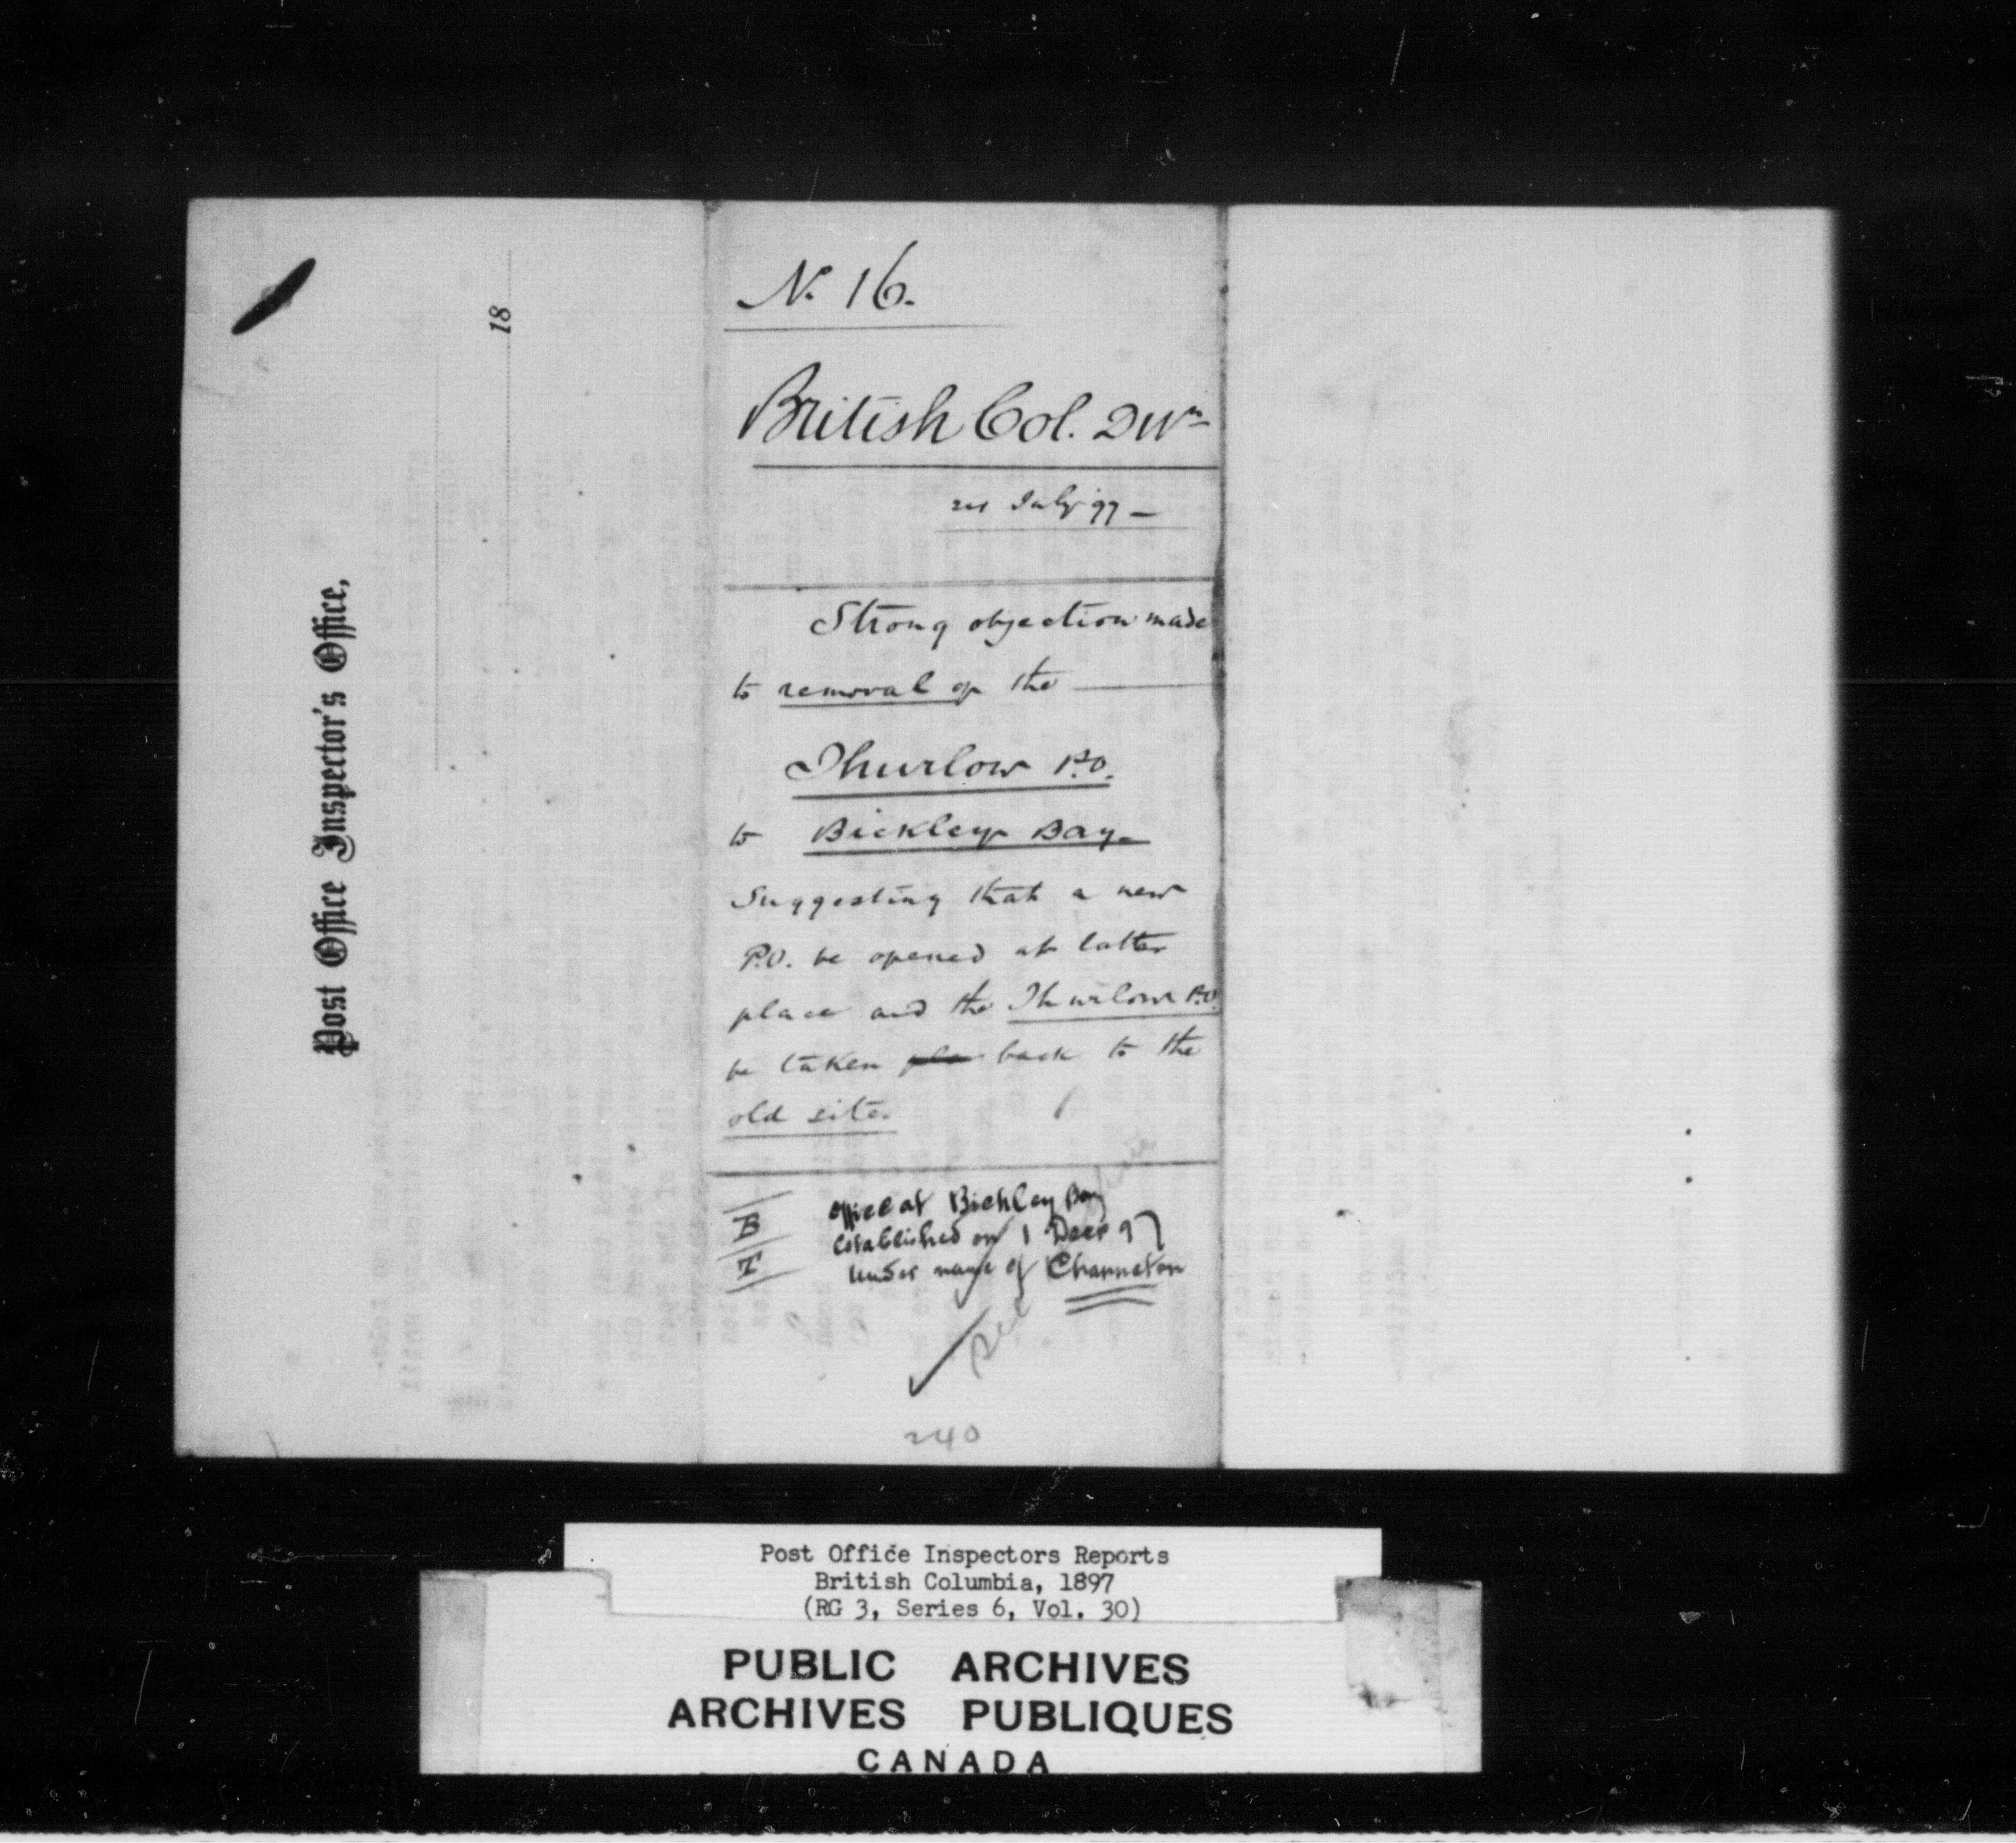 Post Office Inspector's Office,
18
No. 16.
British Col. Dwn
July 97 —
Strong objection made
to removal of the
Thurlow P.O.
to Bickley Bay.
Suggesting that a new
P.O. be opened at latter
place and the Thurlow P.O.
be taken back to the
old site.
B
T
Office at Bickley Bay
Established on 1 Decr 97
under name of Channeton
240
Post Office Inspectors Reports
British Columbia, 1897
(RG 3, Series 6, Vol. 30)
PUBLIC ARCHIVES
ARCHIVES PUBLIQUES
CANADA